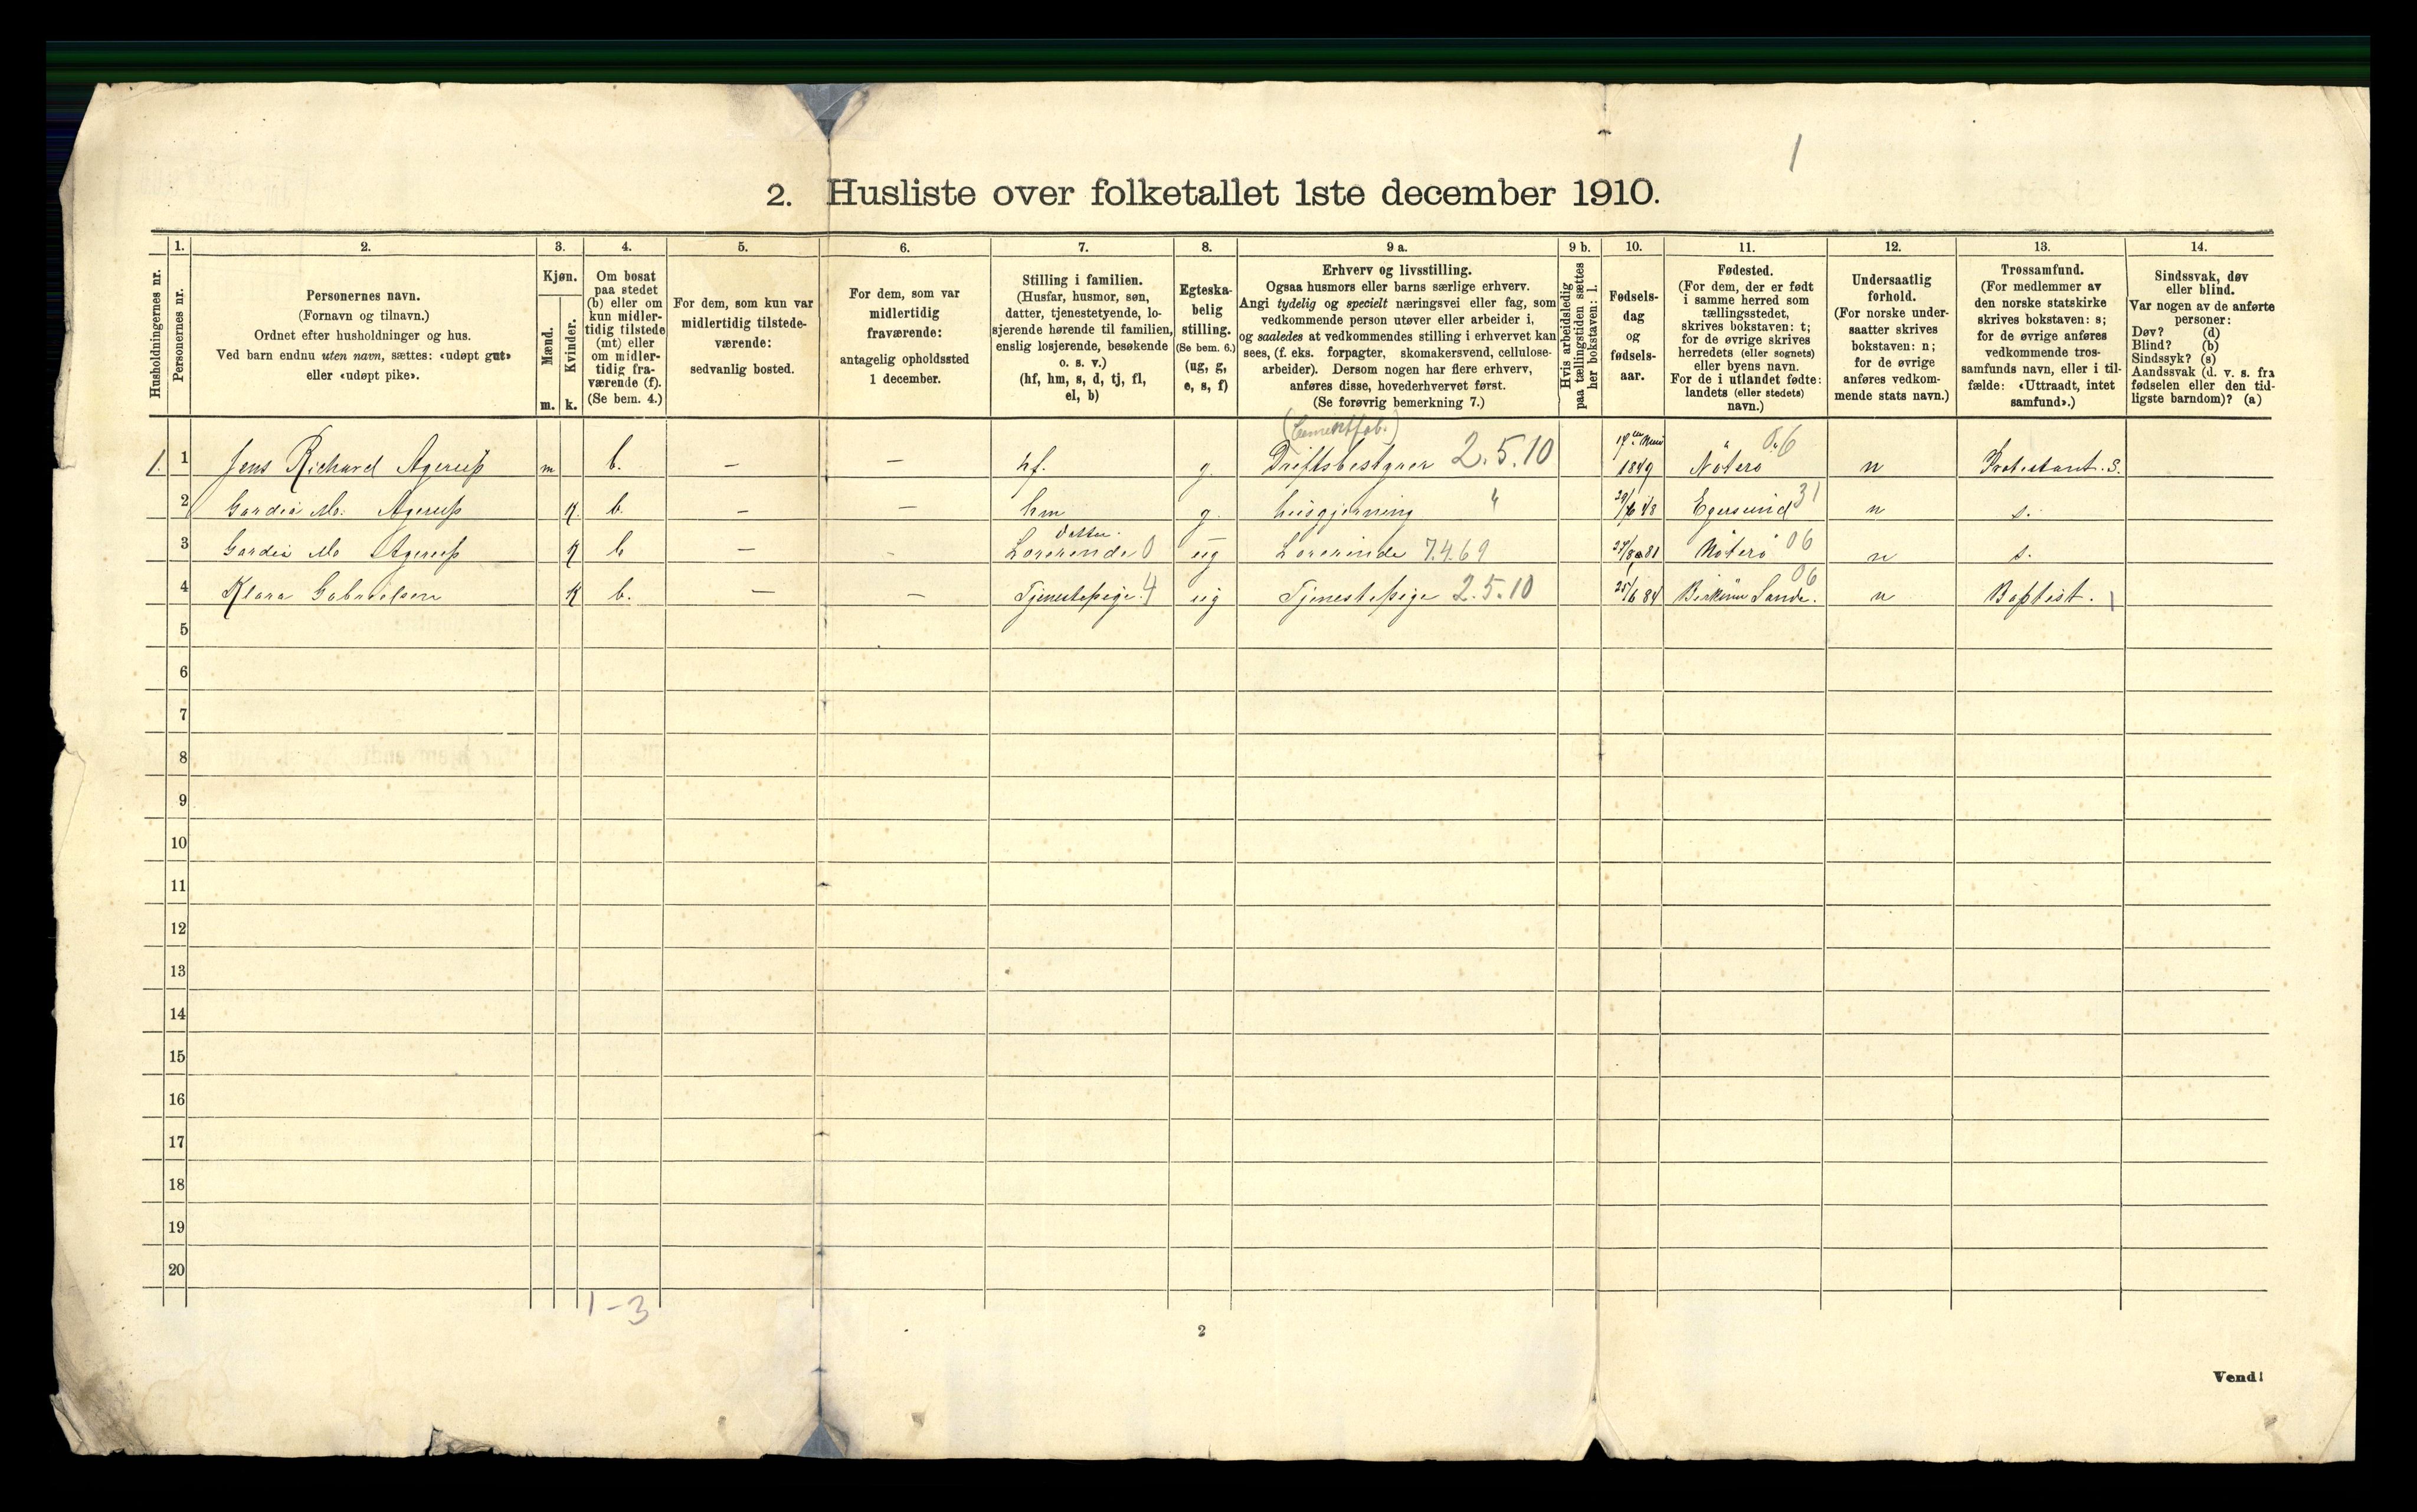 1
2. Husliste over folketallet 1ste december 1910.
Husholdningernes nr.
1.
Personernes nr.
2.
Personernes navn.
(Fornavn og tilnavn.)
Ordnet efter husholdninger og hus.
Ved barn endnu uten navn, sættes: «udøpt gut»
eller «udøpt pike».
3.
Kjøn.
Mænd.
Kvinder.
m. k.
4.
Om bosat
paa stedet
(b) eller om
kun midler-
tidig tilstede
(mt) eller
om midler-
tidig fra-
værende (f).
(Se bem. 4.)
5.
For dem, som kun var
midlertidig tilstede-
værende:
sedvanlig bosted.
6.
For dem, som var
midlertidig
fraværende:
antagelig opholdssted
1 december.
7.
Stilling i familien.
(Husfar, husmor, søn,
datter, tjenestetyende, lo-
sjerende hørende til familien,
enslig losjerende, besøkende
o. s. v.)
(hf, hm, s, d, tj, fl,
el, b)
8.
Egteska-
belig
stilling.
(Se bem. 6.)
(ug, g,
e, s, f)
9 a.
Erhverv og livsstilling.
Ogsaa husmors eller barns særlige erhverv.
Angi tydelig og specielt næringsvei eller fag, som
vedkommende person utøver eller arbeider i,
og saaledes at vedkommendes stilling i erhvervet kan
sees, (f. eks. forpagter, skomakersvend, cellulose-
arbeider). Dersom nogen har flere erhverv,
anføres disse, hovederhvervet først.
(Se forøvrig bemerkning 7.)
9 b.
Hvis arbeidsledig
paa tællingstiden sættes
her bokstaven: l.
10.
Fødsels-
dag
og
fødsels-
aar.
11.
Fødested.
(For dem, der er født
i samme herred som
tællingsstedet,
skrives bokstaven: t;
for de øvrige skrives
herredets (eller sognets)
eller byens navn.
For de i utlandet fødte:
landets (eller stedets)
navn.)
12.
Undersaatlig
forhold.
(For norske under-
saatter skrives
bokstaven: n;
for de øvrige
anføres vedkom-
mende stats navn.)
13.
Trossamfund.
(For medlemmer av
den norske statskirke
skrives bokstaven: s;
for de øvrige anføres
vedkommende tros-
samfunds navn, eller i til-
fælde: «Uttraadt, intet
samfund».)
14.
Sindssvak, døv
eller blind.
Var nogen av de anførte
personer:
Døv? (d)
Blind? (b)
Sindssyk? (s)
Aandssvak (d. v. s. fra
fødselen eller den tid-
ligste barndom)? (a)
(Cementfab.)
1. 1 Jens Richard Agerup m b. — — hf. g. Driftsbestyrer 2.5.10 1849 Nöterö 06 n Protestant. s.
2 Gardia Mo: Agerup K. b. — — hm g. husgjerning " 29/6 48 Egersund 31 n s.
Datter.
3 Gardia Mo Agerup K b — - Lærerinde 0 ug Lærerinde 7.4.69 27/8 81 Nöterö 06 n s.
4 Klara Gabrielsen K b. — — Tjenestepige. 4 ug Tjenestepige 2.5.10 25/6 84 Sande. 06 n Baptist. 1
5
6
7
8
9
10
11
12
13
14
15
16
17
18
19
20
1-3
2
Vend!